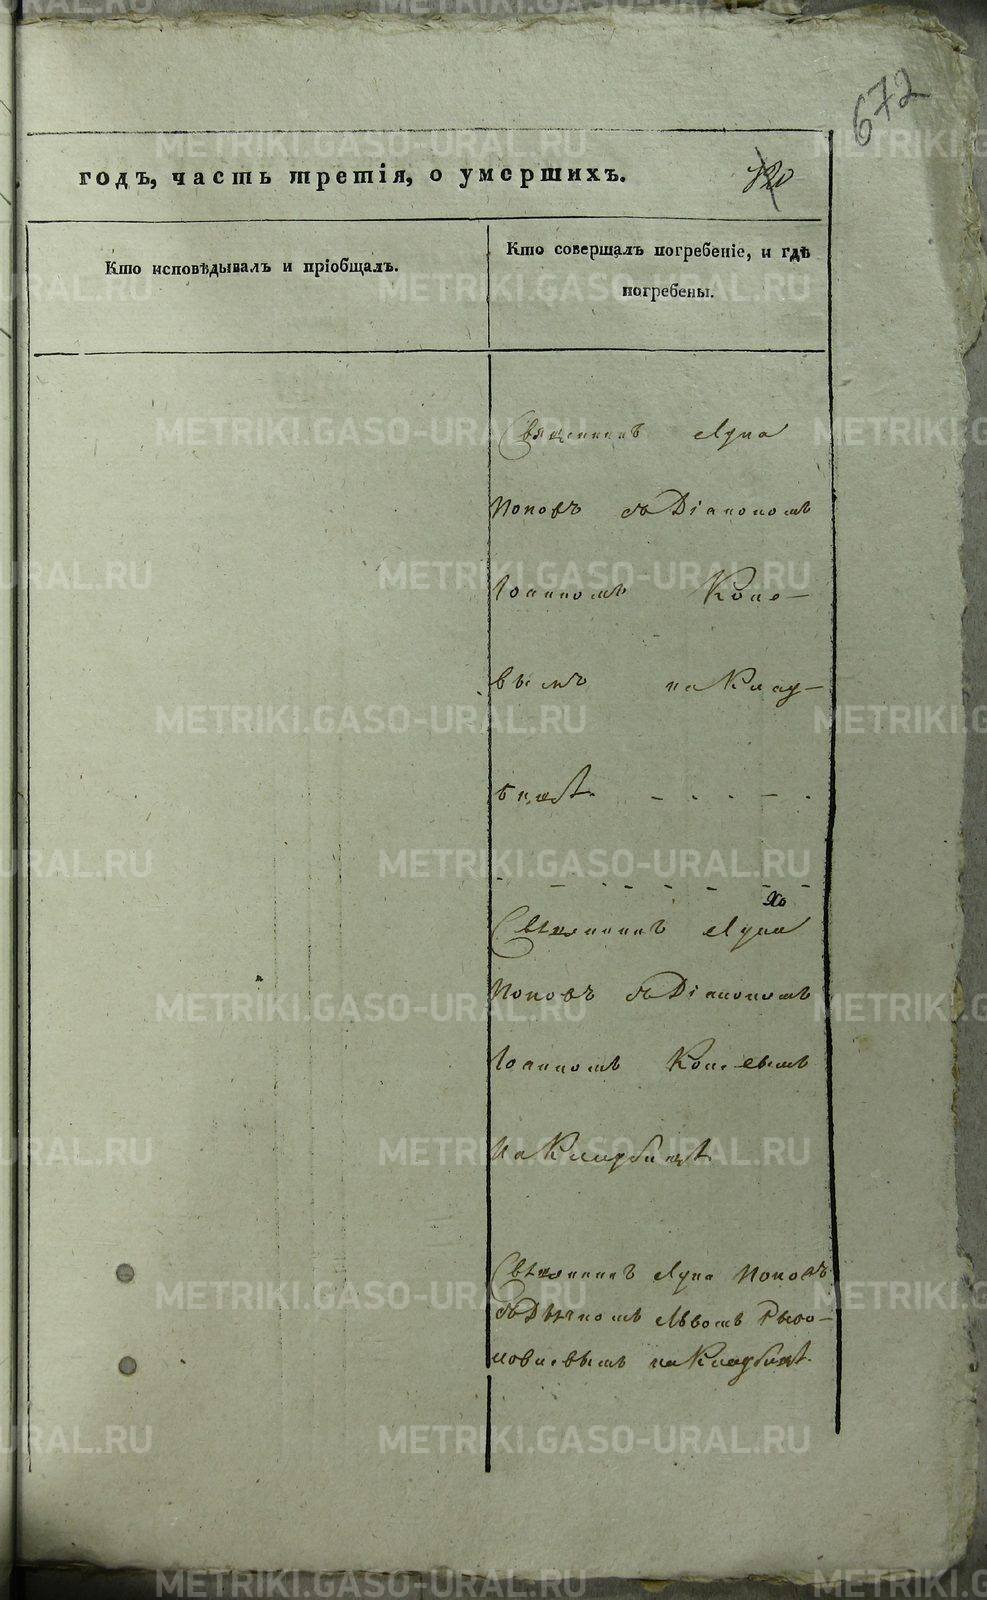 672
годъ, часть третія, о умершихъ.
Кто исповѣдывалъ и пріобщалъ.
Кто совершалъ погребеніе, и гдѣ
погребены.
Священникъ Лука
Поповъ съ Діакономъ
Іоанномъ Копе-
вымъ на Клад-
бищѣ.
Священникъ Лука
Поповъ съ Діакономъ
Іоанномъ Копевымъ
на Кладбищѣ.
Священникъ Лука Поповъ
съ Дьячкомъ Львомъ
на Кладбищѣ.
METRIKI.GASO-URAL.RU